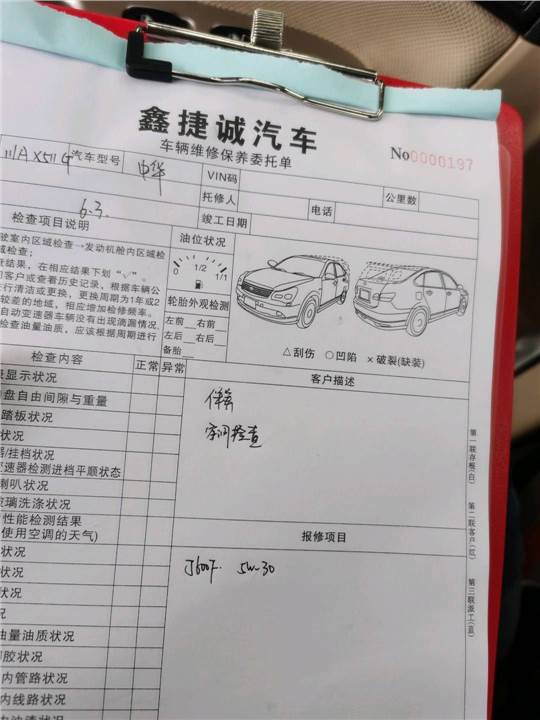 鑫捷诚汽车
车辆维修保养委托单
No0000197
AX511G 汽车型号 中华 VIN码
托修人 电话 公里数
6.3. 竣工日期
检查项目说明 油位状况
驶室内区域检查→发动机舱内区域检
域检查；
结果，在相应结果下划“√”。
客户或查看历史记录，根据车辆公
行清洁或更换，更换周期为1年或2
较差的地域，相应增加检修频率。
自动变速器车辆没有出现滴漏情况
检查油量油质，应该根据周期进行
0 1/2 1/1
轮胎外观检测
左前 右前
左后 右后
备胎
△刮伤 ○凹陷 ×破裂(缺装)
检查内容 正常 异常 客户描述
显示状况
盘自由间隙与重量
踏板状况
状况
/挂档状况
变速器检测进档平顺状态
喇叭状况
玻璃洗涤状况
性能检测结果
使用空调的天气)
状况
状况
状况
况
油量油质状况
胶状况
内管路状况
内线路状况
保养
全车检查
报修项目
5W-30
第一联存根(白)
第二联客户(红)
第三联派工(蓝)